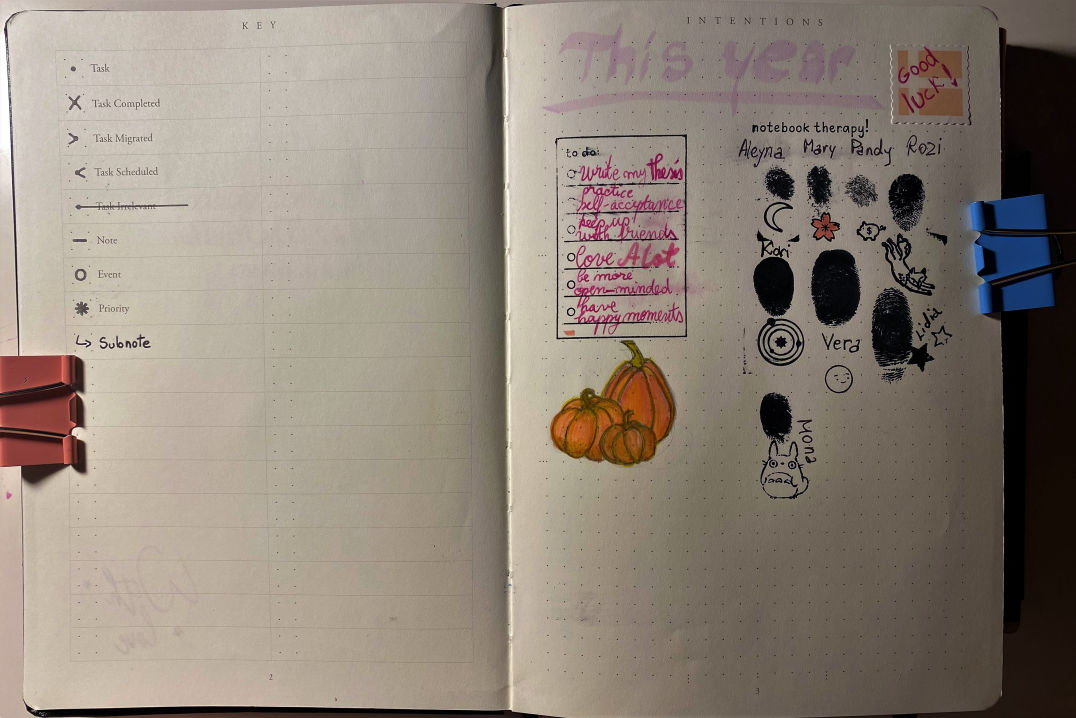 KEY
Task
Task Completed
Task Migrated
Task Scheduled
Task Irrelevant
Note
Event
Priority
Subnote
2
INTENTIONS
This year
Good
luck!
to do:
write my thesis
practice
self-acceptance
keep up
with friends
love A lot
be more
open-minded
have
happy moments
notebook therapy!
Aleyna Mary Pandy Rozi
Kori
Vera
Lidia
Mona
3